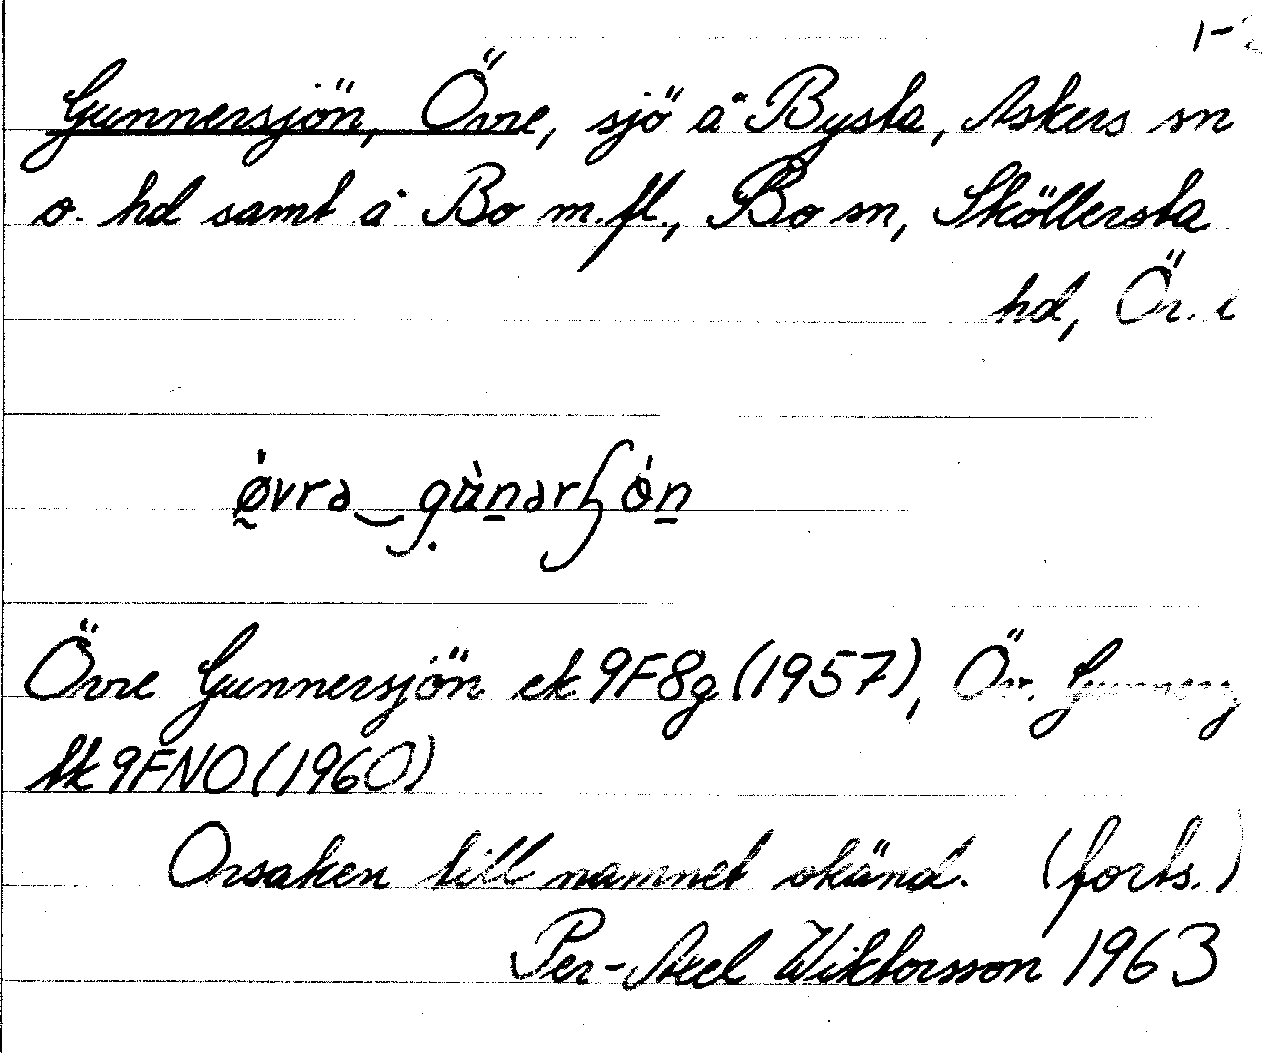 1-2
Gunnersjön, Övre, sjö å Bysta, Askers sn
o. hd samt å Bo m.fl., Bo sn, Sköllersta
hd, Ör. l
ek 9F8g (1957), Öv. Gunners
Övre Gunnersjön
tk 9FNO (1960)
Orsaken till namnet okänd. (forts.)
Per-Axel Wiktorsson 1963